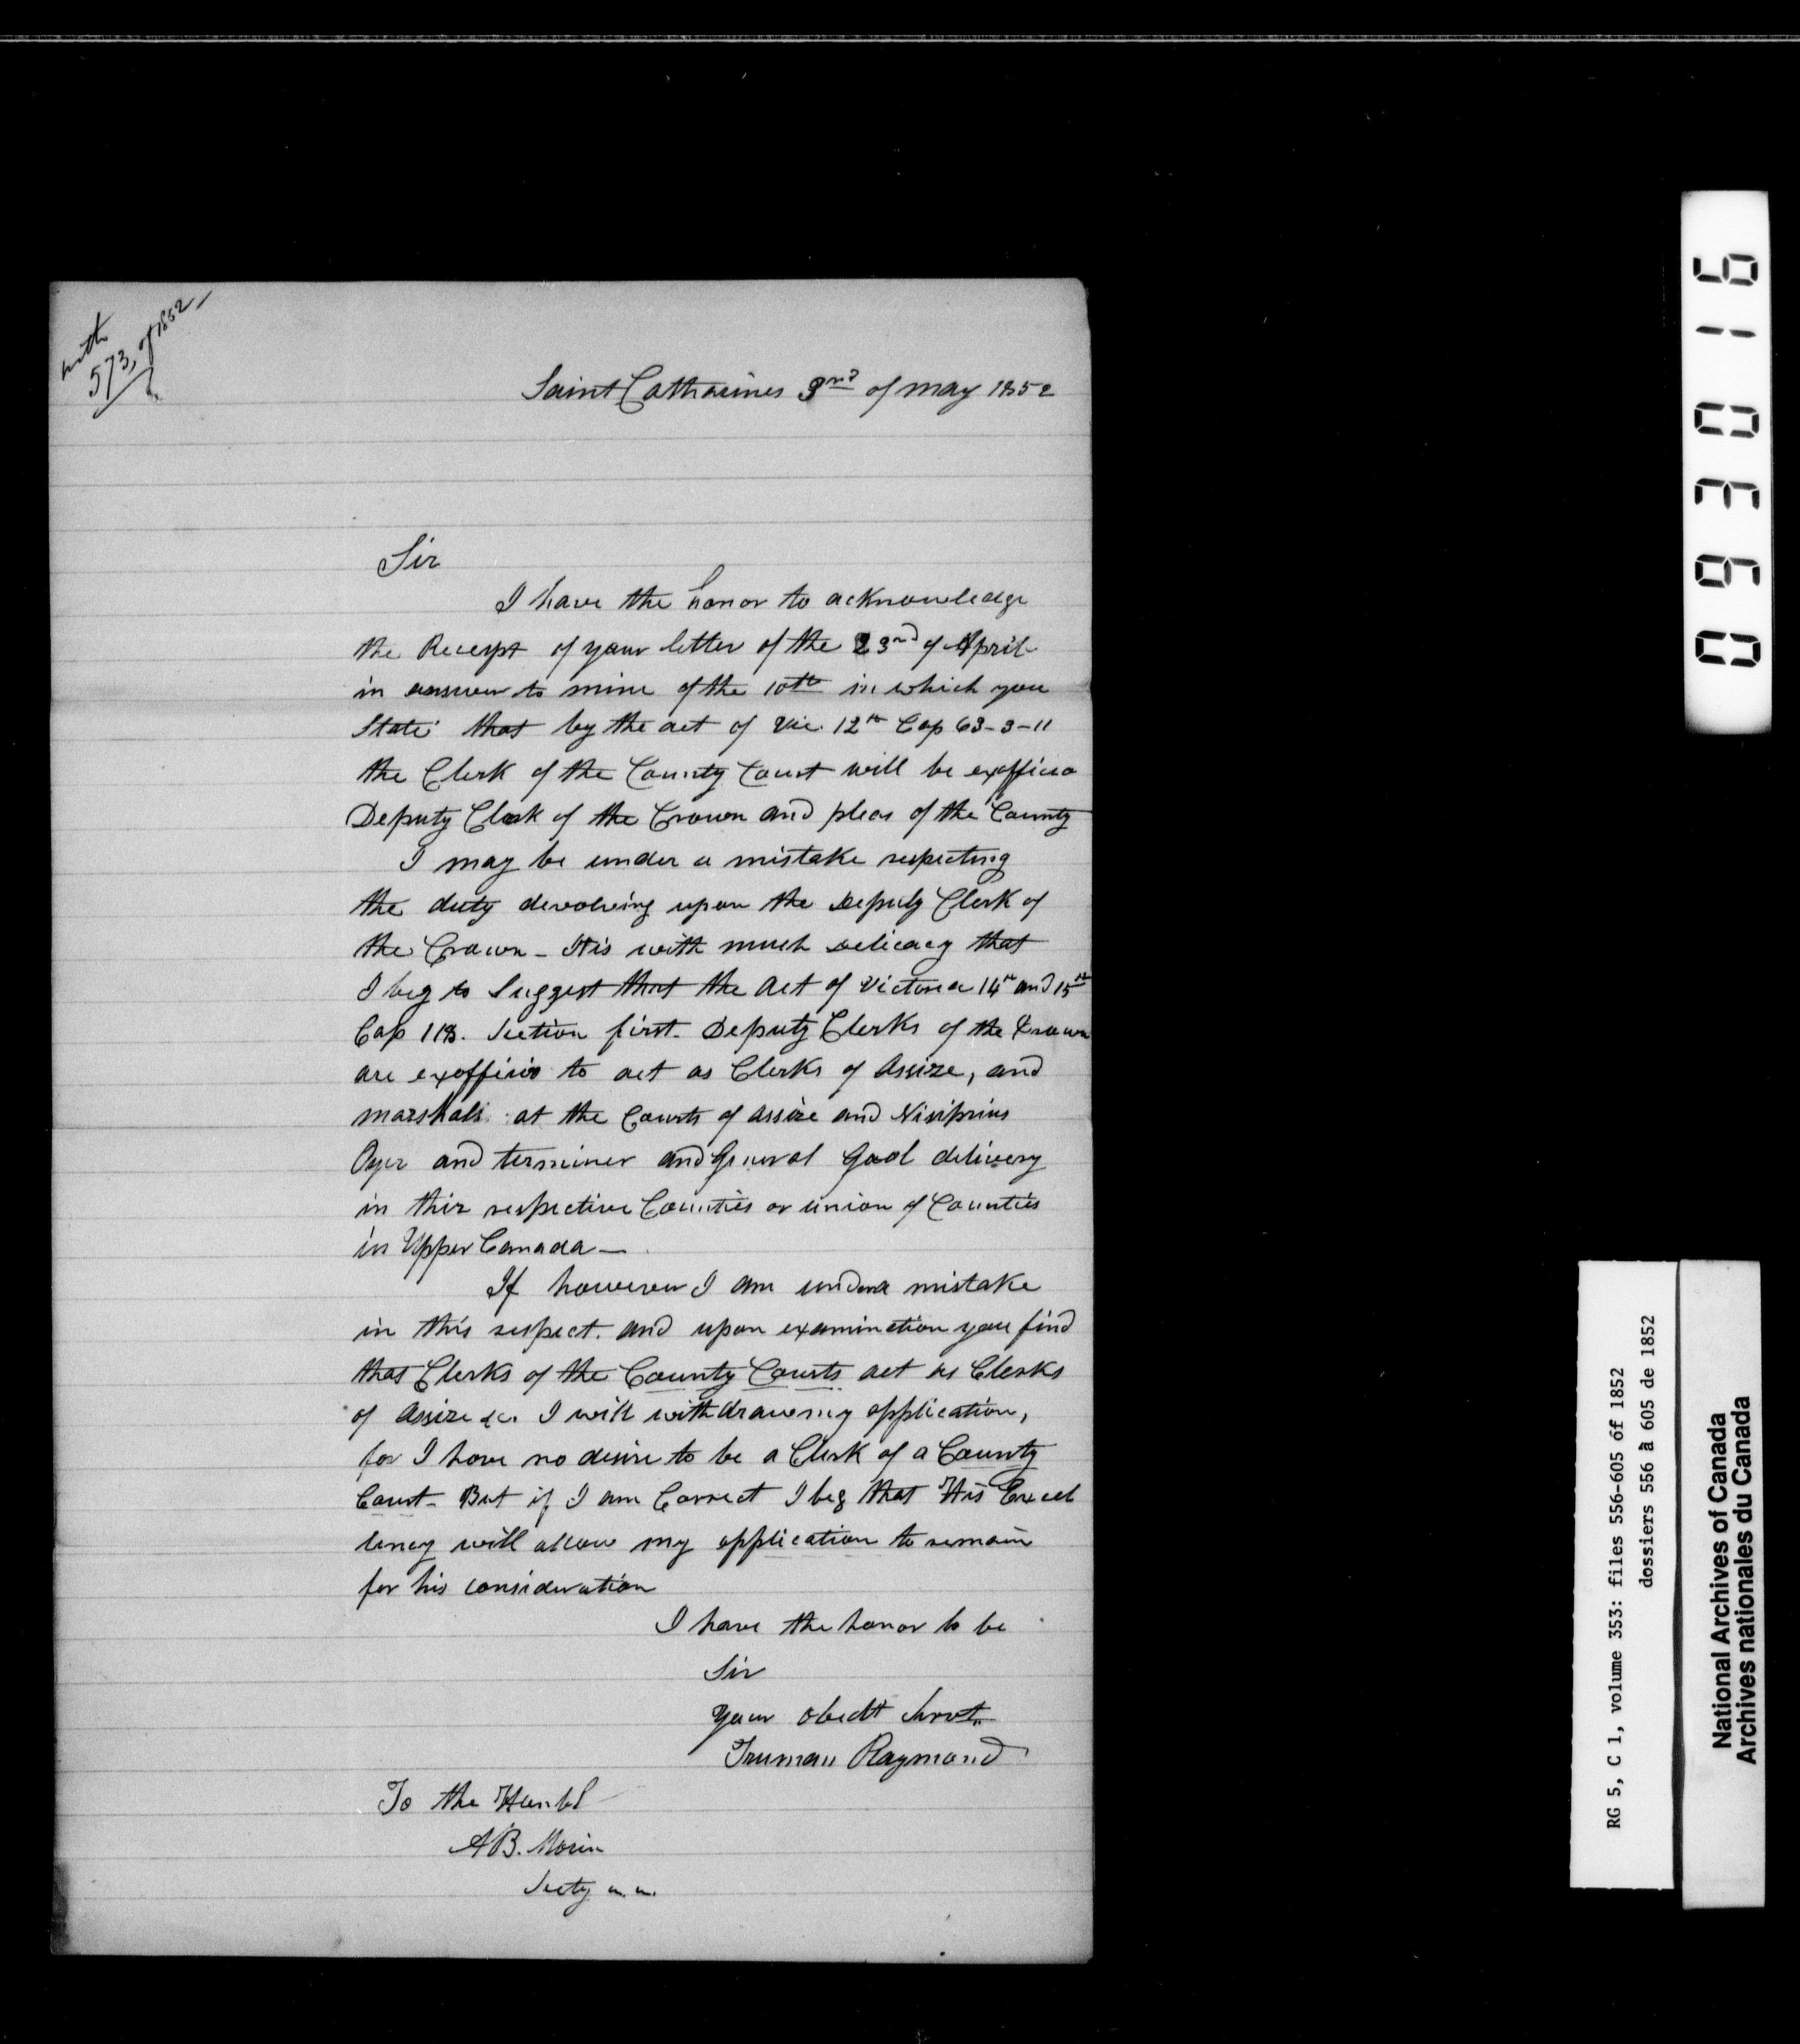 with
573, of 1852
Saint Catharines 3rd of may 1852
Sir
I have the honor to acknowledge
the Receipt of your letter of the 23rd of April
in answer to mine of the 10th in which you
State that by the act of Vic. 12th Cap 63-3-11
the Clerk of the County Court will be exofficio
Deputy Clerk of the Crown and pleas of the County
I may be under a mistake respecting
the duty devolving upon the Deputy Clerk of
the Crown - It is with much delicacy that
I beg to Suggest that the Act of Victoria 14th and 15th
Cap 118. Section first. Deputy Clerks of the Crown
are exofficio to act as Clerks of Assize, and
marshals at the Courts of Assize and Nisiprius
Oyer and terminer and General Gaol delivery
in thir respective Counties or union of Counties
in Upper Canada —
If however I am under a mistake
in this respect. and upon examination you find
that Clerks of the County Courts act as Clerks
of Assize &c. I will withdraw my application,
for I have no desire to be a Clerk of a County
Court - But if I am Correct I beg that His Excel
lency will allow my application to remain
for his consideration
I have the honor to be
Sir
your obedt Servt.
Truman Raymond
To the Honbl
A B. Morin
Secty
093016
RG 5, C 1, volume 353: files 556-605 of 1852
dossiers 556 à 605 de 1852
National Archives of Canada
Archives nationales du Canada